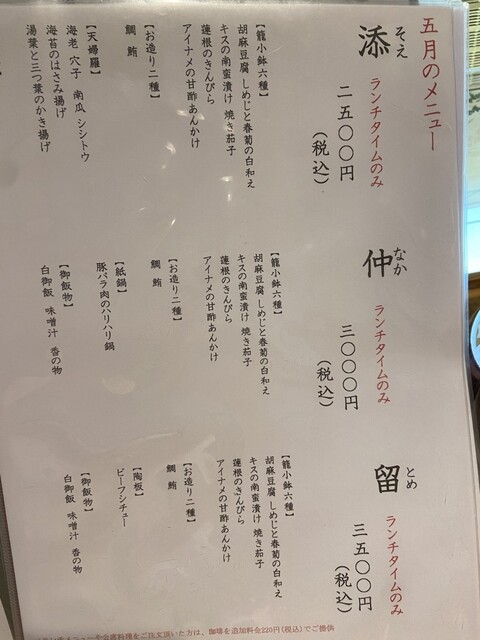 五月のメニュー
添
そえ
ランチタイムのみ
二五〇〇円
（税込）
【籠小鉢六種】
胡麻豆腐 しめじと春菊の白和え
キスの南蛮漬け 焼き茄子
蓮根のきんぴら
アイナメの甘酢あんかけ
【お造り二種】
鯛 鮪
【天婦羅】
海老 穴子 南瓜 シシトウ
海苔のはさみ揚げ
湯葉と三つ葉のかき揚げ
仲
なか
ランチタイムのみ
三〇〇〇円
（税込）
【籠小鉢六種】
胡麻豆腐 しめじと春菊の白和え
キスの南蛮漬け 焼き茄子
蓮根のきんぴら
アイナメの甘酢あんかけ
【お造り二種】
鯛 鮪
【紙鍋】
豚バラ肉のハリハリ鍋
【御飯物】
白御飯 味噌汁 香の物
留
とめ
ランチタイムのみ
三五〇〇円
（税込）
【籠小鉢六種】
胡麻豆腐 しめじと春菊の白和え
キスの南蛮漬け 焼き茄子
蓮根のきんぴら
アイナメの甘酢あんかけ
【お造り二種】
鯛 鮪
【陶板】
ビーフシチュー
【御飯物】
白御飯 味噌汁 香の物
をご注文頂いた方は、珈琲を追加料金220円(税込)でご提供